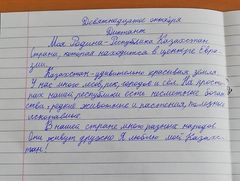 Девятнадцатое октября
Диктант
Моя Родина – Республика Казахстан.
Страна, которая находится в центре Евра-
зии.
Казахстан – удивительно красивая земля.
У нас много озёр, рек, городов и сёл. На простo-
рах нашей республики есть несметные богат-
ства: редкие животные и растения, полезные
ископаемые.
В нашей стране много разных народов.
Они живут дружно. Я люблю мой Казахс-
тан!